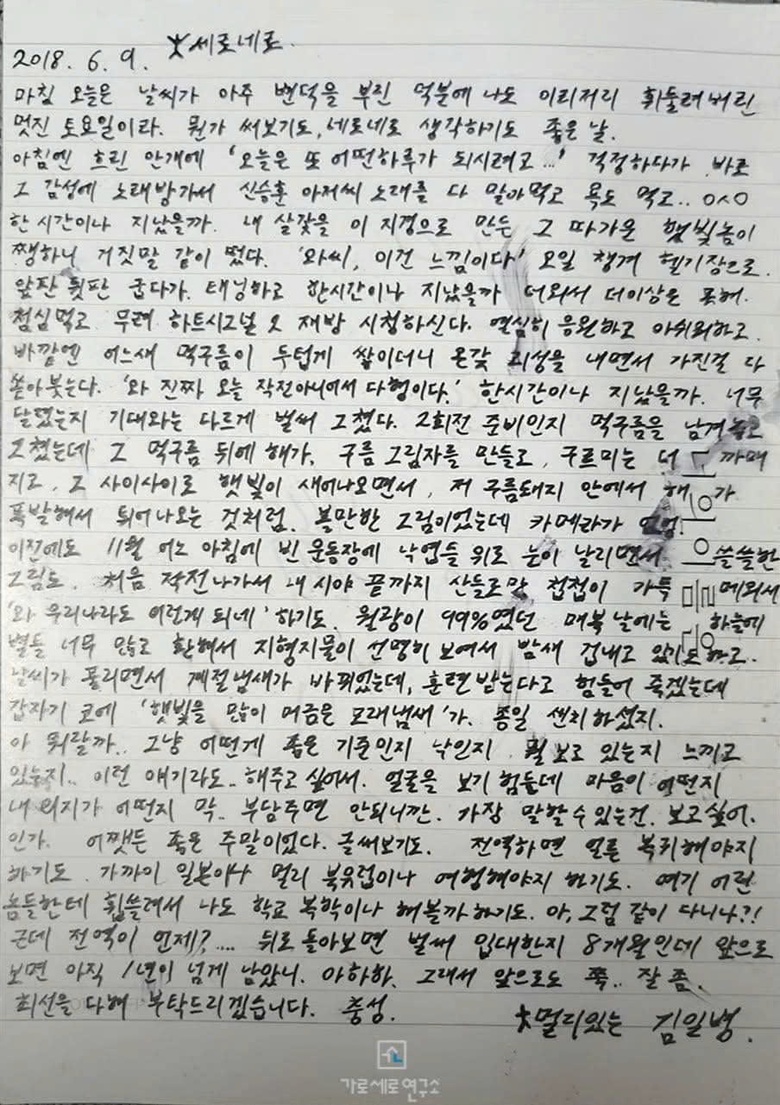 2018. 6. 9. 세로네로.
마침 오늘은 날씨가 아주 변덕을 부린 덕분에 나도 이리저리 휘둘려버린
멋진 토요일이라. 뭔가 써보기도, 네로네로 생각하기도 좋은 날.
아침엔 흐린 안개에 '오늘은 또 어떤하루가 되시려고...' 걱정하다가 바로
그 감성에 노래방가서 신승훈 아저씨 노래를 다 말아먹고 욕도 먹고..
한 시간이나 지났을까. 내 살갗을 이 지경으로 만든 그 따가운 햇빛놈이
쨍하니 거짓말 같이 떴다. '와씨, 이건 느낌이다' 오일 챙겨 헬기장으로.
앞판 뒷판 굽다가. 태닝하고 한시간이나 지났을까 더워서 더이상은 못해.
점심먹고 무려 하트시그널 2 재방 시청하신다. 열심히 응원하고 아쉬워하고.
바깥엔 어느새 먹구름이 두텁게 쌓이더니 온갖 괴성을 내면서 가진걸 다
쏟아붓는다. '와 진짜 오늘 작전아니어서 다행이다.' 한시간이나 지났을까. 너무
달렸는지 기대와는 다르게 벌써 그쳤다. 2회전 준비인지 먹구름을 남겨놓고
그쳤는데 그 먹구름 뒤에 해가. 구름 그림자를 만들고, 구르미는 더 까매
지고, 그 사이사이로 햇빛이 새어나오면서, 저 구름돼지 안에서 해가
폭발해서 튀어나오는 것처럼. 볼만한 그림이었는데 카메라가
이전에도 11월 어느 아침에 빈 운동장에 낙엽들 위로 눈이 날리면서 쓸쓸한
그림도. 처음 작전나가서 내 시야 끝까지 산들로만 첩첩이 가득 메워서
'와 우리나라도 이렇게 되네' 하기도. 월광이 99%였던 매복 날에는 하늘에
별들 너무 많고 환해서 지형지물이 선명히 보여서 밤새 겁내고 있기도하고..
날씨가 풀리면서 계절냄새가 바뀌었는데, 훈련받는다고 힘들어 죽겠는데
갑자기 코에 '햇빛을 많이 머금은 모래냄새'가. 종일 센치하셨지.
아 뭐랄까.. 그냥 어떤게 좋은 기준인지 낙인지 뭘 보고 있는지 느끼고
있는지.. 이런 얘기라도.. 해주고 싶어서. 얼굴을 보기 힘든데 마음이 어떤지
내 의지가 어떤지 막.. 부담주면 안되니깐. 가장 말할 수 있는건. 보고싶어.
인가. 어쨌든 좋은 주말이었다. 글써보기도. 전역하면 얼른 복귀해야지
하기도. 가까이 일본이나 멀리 북유럽이나 여행해야지 하기도. 여기 어린
놈들한테 휩쓸려서 나도 학교 복학이나 해볼까 하기도. 아, 그럼 같이 다니나?!
근데 전역이 언제?.... 뒤로 돌아보면 벌써 입대한지 8개월인데 앞으로
보면 아직 1년이 넘게 남았니. 아하하. 그래서 앞으로도 쭉.. 잘 좀.
최선을 다해 부탁드리겠습니다. 충성.
멀리있는 김일병.
가로세로연구소